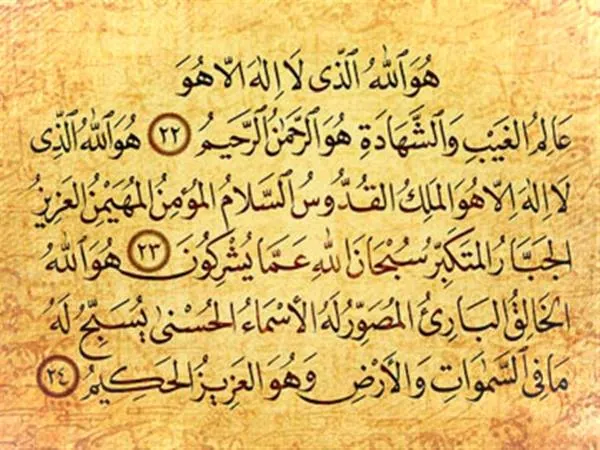 هُوَ ٱللَّهُ ٱلَّذِى لَا إِلٰهَ إِلَّا هُوَ
عَالِمُ الْغَيْبِ وَٱلشَّهَادَةِ هُوَ ٱلرَّحْمٰنُ ٱلرَّحِيمُ ٢٢ هُوَ ٱللَّهُ ٱلَّذِى
لَا إِلٰهَ إِلَّا هُوَ الْمَلِكُ الْقُدُّوسُ ٱلسَّلَامُ الْمُؤْمِنُ الْمُهَيْمِنُ الْعَزِيزُ
الْجَبَّارُ الْمُتَكَبِّرُ سُبْحَانَ اللهِ عَمَّا يُشْرِكُونَ ٢٣ هُوَ ٱللَّهُ
الْخَالِقُ الْبَارِئُ الْمُصَوِّرُ لَهُ الْأَسْمَاءُ الْحُسْنٰى يُسَبِّحُ لَهُ
مَا فِى ٱلسَّمٰوَاتِ وَالْأَرْضِ وَهُوَ الْعَزِيزُ الْحَكِيمُ ٢٤